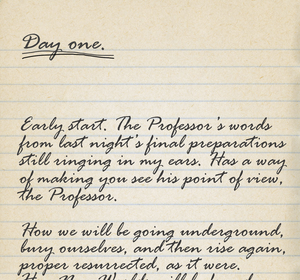 Day one.
Early start. The Professor's words
from last night's final preparations
still ringing in my ears. Has a way
of making you see his point of view,
the Professor.
How we will be going underground,
bury ourselves, and then rise again,
proper resurrected, as it were.